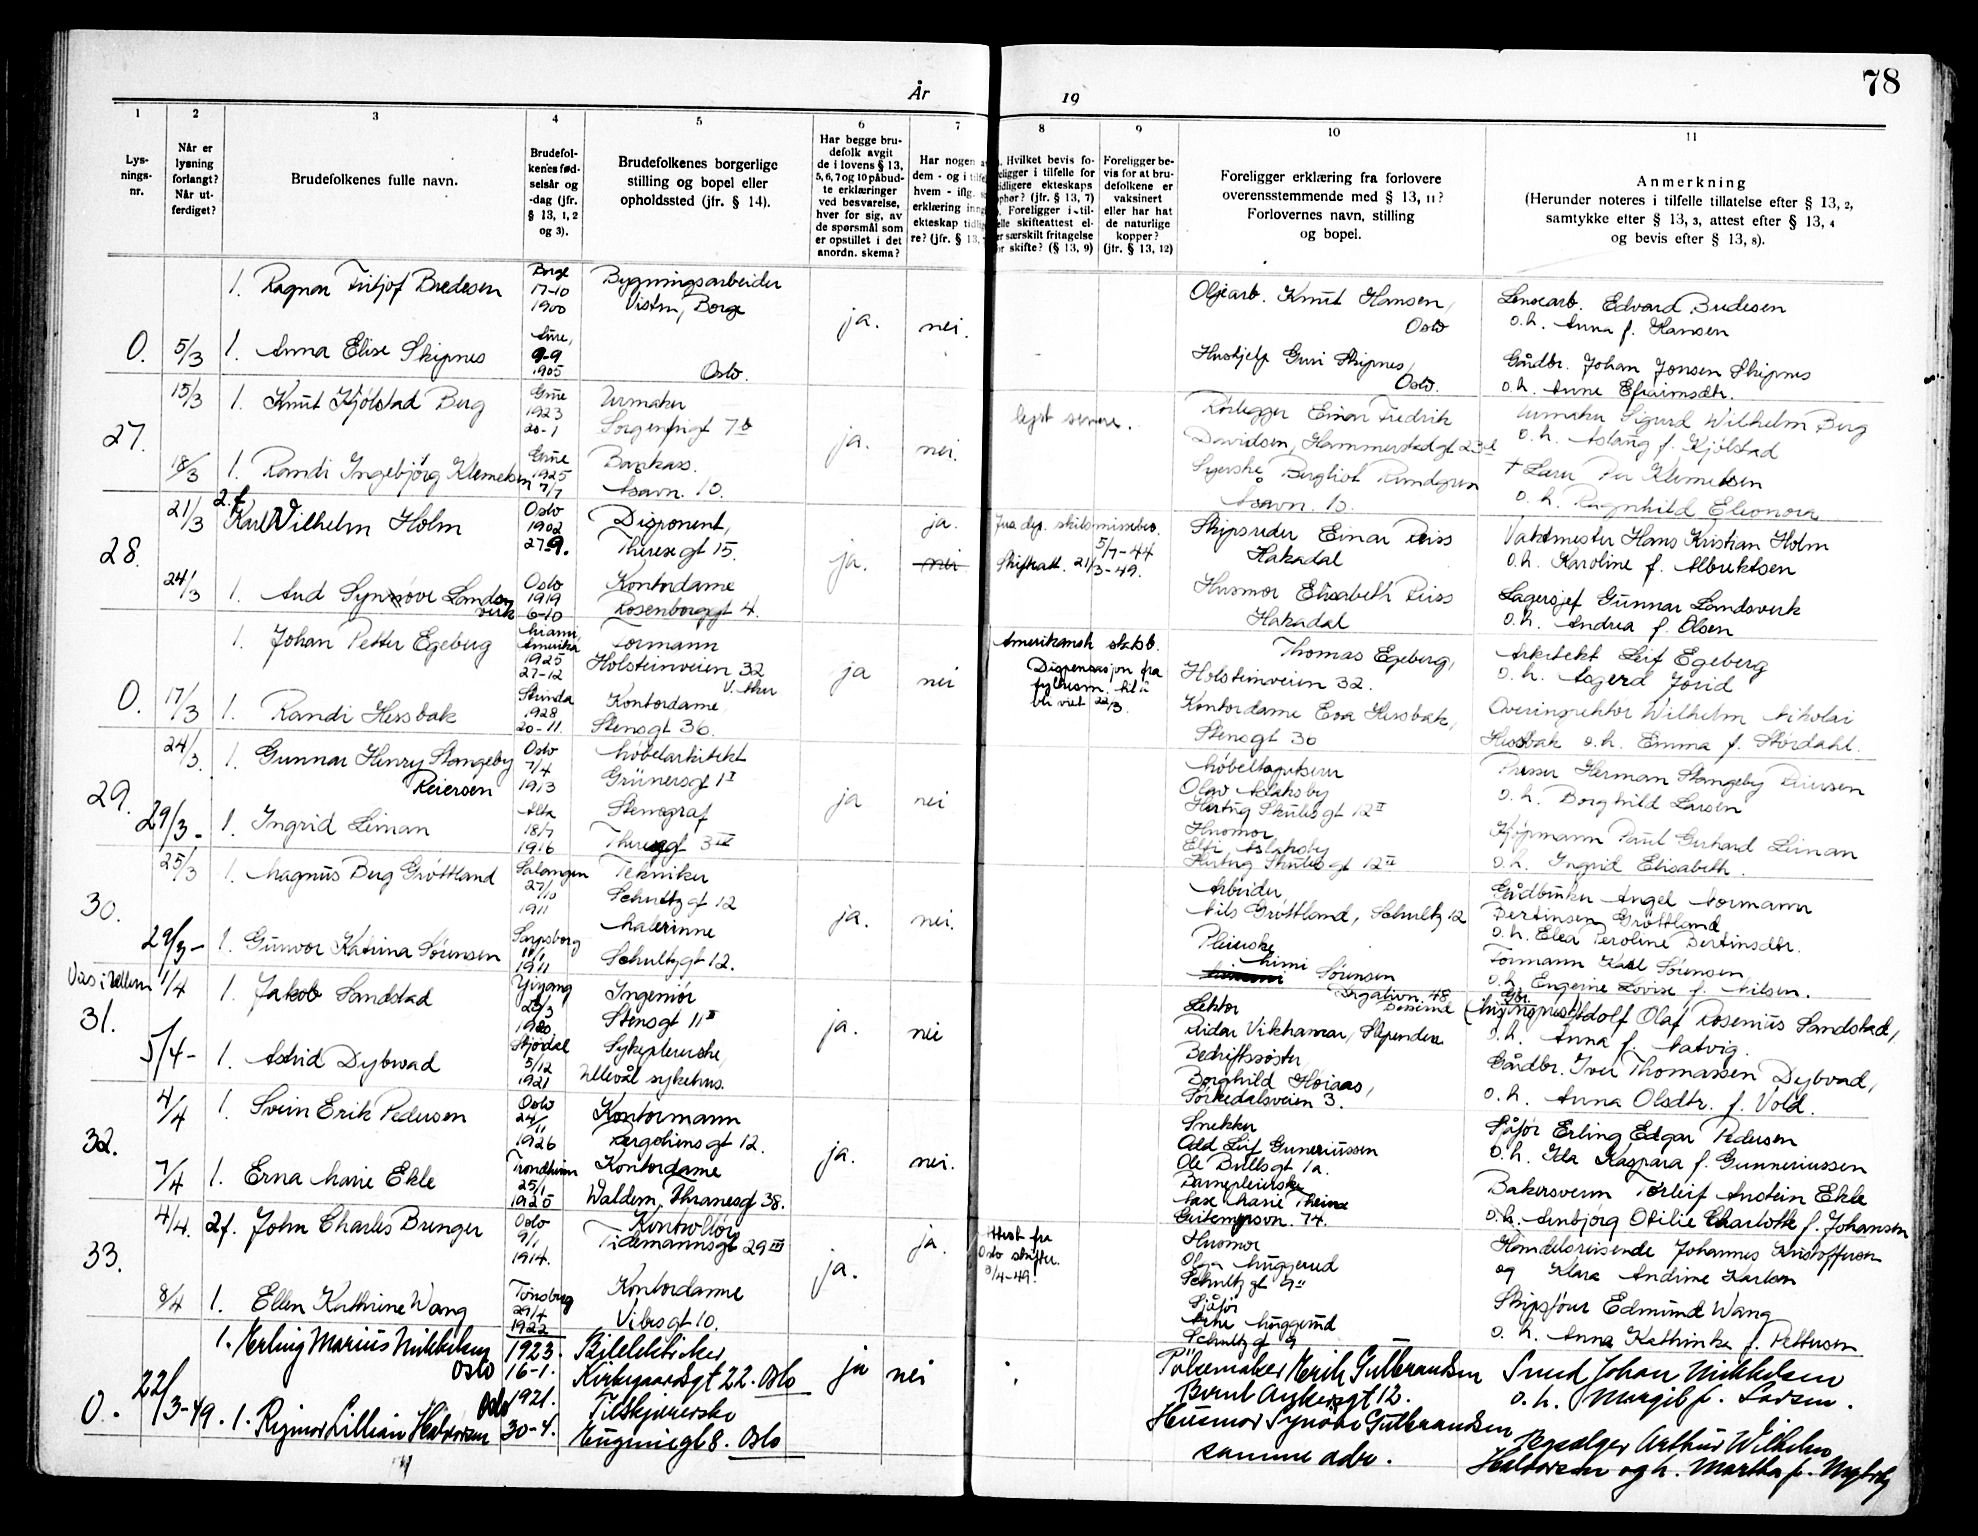 78
År
19
1
2
3
4
5
6
7
8
9
10
11
Lys-
nings-
nr.
Når er
lysning
forlangt?
Når ut-
ferdiget?
Brudefolkenes fulle navn.
Brudefol-
kenes fød-
selsår og
-dag (jfr.
§ 13, 1, 2
og 3).
Brudefolkenes borgerlige
stilling og bopel eller
opholdssted (jfr. § 14).
Har begge bru-
defolk avgit
de i lovens § 13,
5, 6, 7 og 10 påbud-
te erklæringer
ved besvarelse,
hver for sig, av
de spørsmål som
er opstillet i det
anordn. skema?
Har nogen
dem - og i
hvem - iflg.
erklæring
ekteskap
re? (jfr. § 13,
Hvilket bevis fo-
i tilfelle for
ekteskaps
(jfr. § 13, 7)
Foreligger i til-
skifteattest el-
særskilt fritagelse
skifte? (§ 13, 9)
Foreligger be-
vis for at bru-
defolkene er
vaksinert
eller har hat
de naturlige
kopper?
(jfr. § 13, 12)
Foreligger erklæring fra forlovere
overensstemmende med § 13, 11?
Forlovernes navn, stilling
og bopel.
Anmerkning
(Herunder noteres i tilfelle tillatelse efter § 13, 2,
samtykke efter § 13, 3, attest efter § 13, 4
og bevis efter § 13, 8).
0. 5/3
1. Ragnar Fritjof Bredesen
Borge
17-10
1900
Bygningsarbeider
Borge
ja. nei.
Knut Hansen,
Oslo
Edvard Bredesen
o.h. Anna f. Hansen
1. Anna Elise Skipnes
9-9
1905
Oslo.
Hushjelp Guri Skipnes,
Oslo.
Gårdbr. Johan Jonsen Skipnes
o.h. Anne Efraimsdtr.
27.
15/3
1. Knut Kjølstad Berg
Grue
1923
20-1
Urmaker
Sorgenfrigt 7b
ja. nei.
lagt senere.
Rørlegger Einar Fredrik
Davidsen, Hammerstadgt 23
Urmaker Sigurd Wilhelm Berg
o.h. Aslaug f. Kjølstad
18/3
1. Randi Ingebjørg Klemetsen
Grue
1925
7/7
Bankass.
Åsavn. 10.
Syerske Bergliot Rundgren
Åsavn. 10.
† Lærer Per Klemetsen
o.h. Ragnhild Eleonora
28.
21/3
2.f. Karl Vilhelm Holm
Oslo
1902
27-9.
Disponent,
Theresegt 15.
ja.
ja.
nei
Fra dep. skilsmissebev.
5/7-44
Skifteatt. 21/3-49.
Skipsreder Einar Riiss
Hakadal
Vaktmester Hans Kristian Holm
o.h. Karoline f. Albrektsen
24/3
1. Aud Synnøve Lands-
verk
Oslo
1919
6-10
Kontordame
Rosenborggt 4.
Husmor Elisabeth Riiss
Hakadal
Lagersjef Gunnar Landsverk
o.h. Andrea f. Olsen
0. 17/3
1. Johan Petter Egeberg
Miami,
Amerika
1925
27-12
Formann
Holsteinveien 32
V. Aker
ja nei
Amerikansk statsb.
Dispensasjon fra
fylkesm. til å
bli viet 22/3.
Thomas Egeberg,
Holsteinveien 32.
Arkitekt Leif Egeberg
o.h. Asgerd Jorid
1. Randi Hessbak
Strinda
1928
20-11.
Kontordame
Stensgt 36.
Kontordame Eva Hessbak,
Stensgt 36
Overinspektør Wilhelm Nikolai
Hessbak o.h. Emma f. Stördahl.
29.
24/3.
1. Gunnar Henry Stangeby
Reiersen
Oslo
7/4
1913
Møbelarkitekt
Grünersgt 1 II
ja nei
Møbeltapetserer
Olav Aslaksby
Hertug Skulesgt 12 II
Presser Herman Stangeby Reiersen
o.h. Borghild Larsen
29/3-
1. Ingrid Leinan
Alta
18/7
1916
Stenograf
Theresegt 3 IV
Husmor
Elfi Aslaksby
Hertug Skulesgt 12 II
Kjøpmann Paul Gerhard Leinan
o.h. Ingrid Elisabeth.
30.
25/3
1. Magnus Berg Grøttland
Salangen
27/10
1911
Tekniker
Schultzgt 12
ja. nei.
Arbeider,
Nils Grøttland, Schultz 12
Gårdbruker Angel Normann
Bertinsen Grøttland
o.h. Elea Peroline Bertinsdtr.
29/3-
1. Gunvor Katrina Sørensen
Sarpsborg
11/1
1911
Malerinne
Schultzgt 12.
Pleierske
Mimi Sørensen
Kirkegtvn. 48
Formann Karl Sørensen
o.h. Eugenie Lovise f. Nilsen.
31.
1/4
1. Jakob Sandstad
Yiyang
Ingeniør
Stensgt 11 II
ja. nei
Lektor
Reidar Vikhamar, Stjørdal
(misjonsprest) Adolf Olaf Rosenius Sandstad,
o.h. Anna f. Natvig.
5/4-
1. Astrid Dybwad
Stjørdal
5/12
1921
Sykepleierske,
Ullevål sykehus.
Bedriftssøster
Borghild Høiaas,
Sørkedalsveien 3.
Gårdbr. Iver Thomassen Dybvad,
o.h. Anna Olsdtr. f. Vold.
32.
4/4
1. Svein Erik Pedersen
Oslo
24/11
1926
Kontormann
Bergsliensgt 12.
ja. nei.
Snekker
Odd Leif Guneriussen
Ole Bullsgt 1a.
Sjåfør Erling Edgar Pedersen
o.h. Ida Kaspara f. Gunneriussen
7/4
1. Erna Marie Ekle
Trondheim
25/1
1925
Kontordame
Waldem. Thranesgt 38.
Barnepleierske
Aase Marie Theine
Geitemyrsvn. 74.
Bakersvenn Torleif Anstein Ekle
o.h. Arnbjørg Otilie Charlotte f. Johansen
33.
4/4.
2f. John Charles Brenger
Oslo
9/1
1914.
Kontrollør
Tidemannsgt 29 III
ja. ja.
Attest fra
Oslo skifter.
8/4-49.
Husmor
Olga Muggerud
Schultzgt 9 II
Handelsreisende Johannes Kristoffersen
og Klara Andrine Karlsen
8/4
1. Ellen Kathrine Wang
Tønsberg
29/4
1922
Kontordame
Vibesgt 10.
Sjåfør
Arne Muggerud
Schultzgt 9 II
Skipsfører Edmund Wang
o.h. Anna Kathinka f. Pettersen
0. 22/3-49.
1. Erling Marius Mikkelsen
Oslo
1923.
16-1.
Bilelektriker
Kirkegaardsgt 22. Oslo
ja nei
Pølsemaker Henrik Gulbrandsen
Bernt Ankersgt 12.
Smed Johan Mikkelsen
o.h. Margit f. Larsen.
1. Rigmor Lillian Halvorsen
Oslo
1921.
30-4.
Tilskjærerske
Eugeniegt 8. Oslo
Husmor Synøve Gulbrandsen
samme adr.
Arthur Wilhelm
Halvorsen og h. Martha f. Myhrby